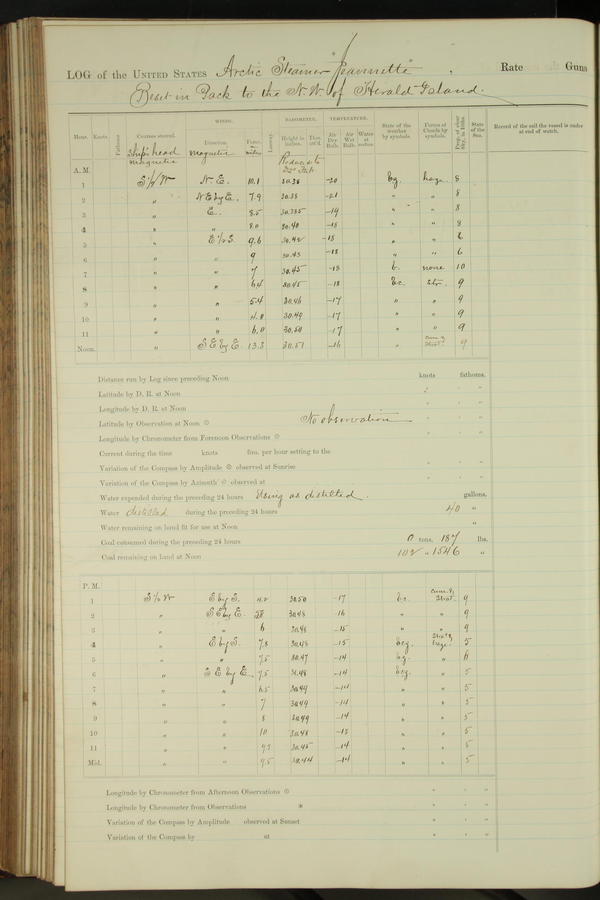 LOG of the UNITED STATES Arctic Steamer "Jeannette", Rate Guns
Beset in Pack to the N.W. of Herald Island.
WINDS. BAROMETER. TEMPERATURE.
Hour. Knots. Fathoms Courses steered. Direction. Force. Leeway. Height in inches. Ther. att'd. Air Dry Bulb. Air Wet Bulb. Water at surface. State of the weather by symbols. Forms of Clouds by symbols. Prop. of clear Sky, in 10ths. State of the Sea. Record of the sail the vessel is under at end of watch.
ship's head magnetic magnetic miles Reduced to
A. M.
1 S ½ W N. E. 10.1 30.38 -20 bz. haze. 8
2 " N E by E. 7.9 30.38 -21 " " 8
3 " E. 8.5 30.385 -19 " " 8
4 " " 8.0 30.40 -18 " " 8
5 " E ½ S. 9.6 30.42 -18 " "
6 " " 9 30.43 -18 " " 6
7 " " 7 30.45 -18 b. none 10
8 " " 6.4 30.45 -18 bc. Str. 9
9 " " 5.4 30.46 -17 " " 9
10 " " 4.8 30.49 -17 " " 9
11 " " 6.0 30.50 -17 " " 9
Noon. " S E by E. 13.3 30.51 -16 " Cum. & Strat. 9
Distance run by Log since preceding Noon knots fathoms.
Latitude by D. R. at Noon " "
Longitude by D. R. at Noon " "
Latitude by Observation at Noon ☉ No observation " "
Longitude by Chronometer from Forenoon Observations ☉ " "
Current during the time knots fms. per hour setting to the
Variation of the Compass by Amplitude ☉ observed at Sunrise " "
Variation of the Compass by Azimuth ☉ observed at " "
Water expended during the preceding 24 hours Using as distilled. gallons.
Water distilled during the preceding 24 hours 40 "
Water remaining on hand fit for use at Noon "
Coal consumed during the preceding 24 hours 0 tons. 187 lbs.
Coal remaining on hand at Noon 102 " 1546 "
P. M.
1 S ½ W E by S. 30.50 -17 bc. Cum. & Strat. 9
2 " S E by E. 30.48 16 " " 9
3 " " 6 30.48 -15 " " 9
4 " E by S. 7.8 30.48 -15 bcz. Strat. & haze. 5
5 " " 7.5 30.47 -14 bz. "
6 " S E by E. 7.5 30.48 -14 bcz. " 5
7 " " 6.5 30.49 -14 " " 5
8 " " 7 30.49 -14 " " 5
9 " " 8 30.49 -14 " " 5
10 " " 10 30.48 -15 " " 5
11 " " 30.45 -14 " " 5
Mid. " " 9.5 30.44 -14 " " 5
Longitude by Chronometer from Afternoon Observations ☉ " "
Longitude by Chronometer from Observations * " "
Variation of the Compass by Amplitude observed at Sunset " "
Variation of the Compass by at " "